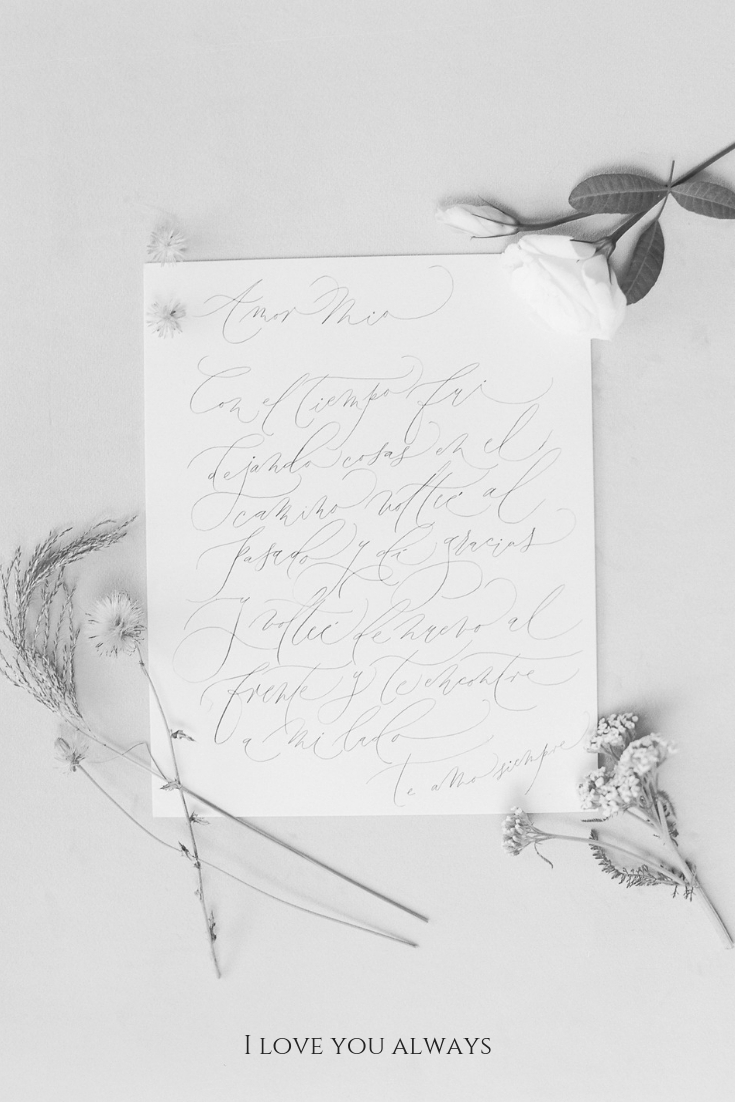 Amor Mio
Con el tiempo fui
dejando cosas en el
camino volteé al
pasado y di gracias
y volteé de nuevo al
frente y te encontre
a mi lado
Te amo siempre
I LOVE YOU ALWAYS